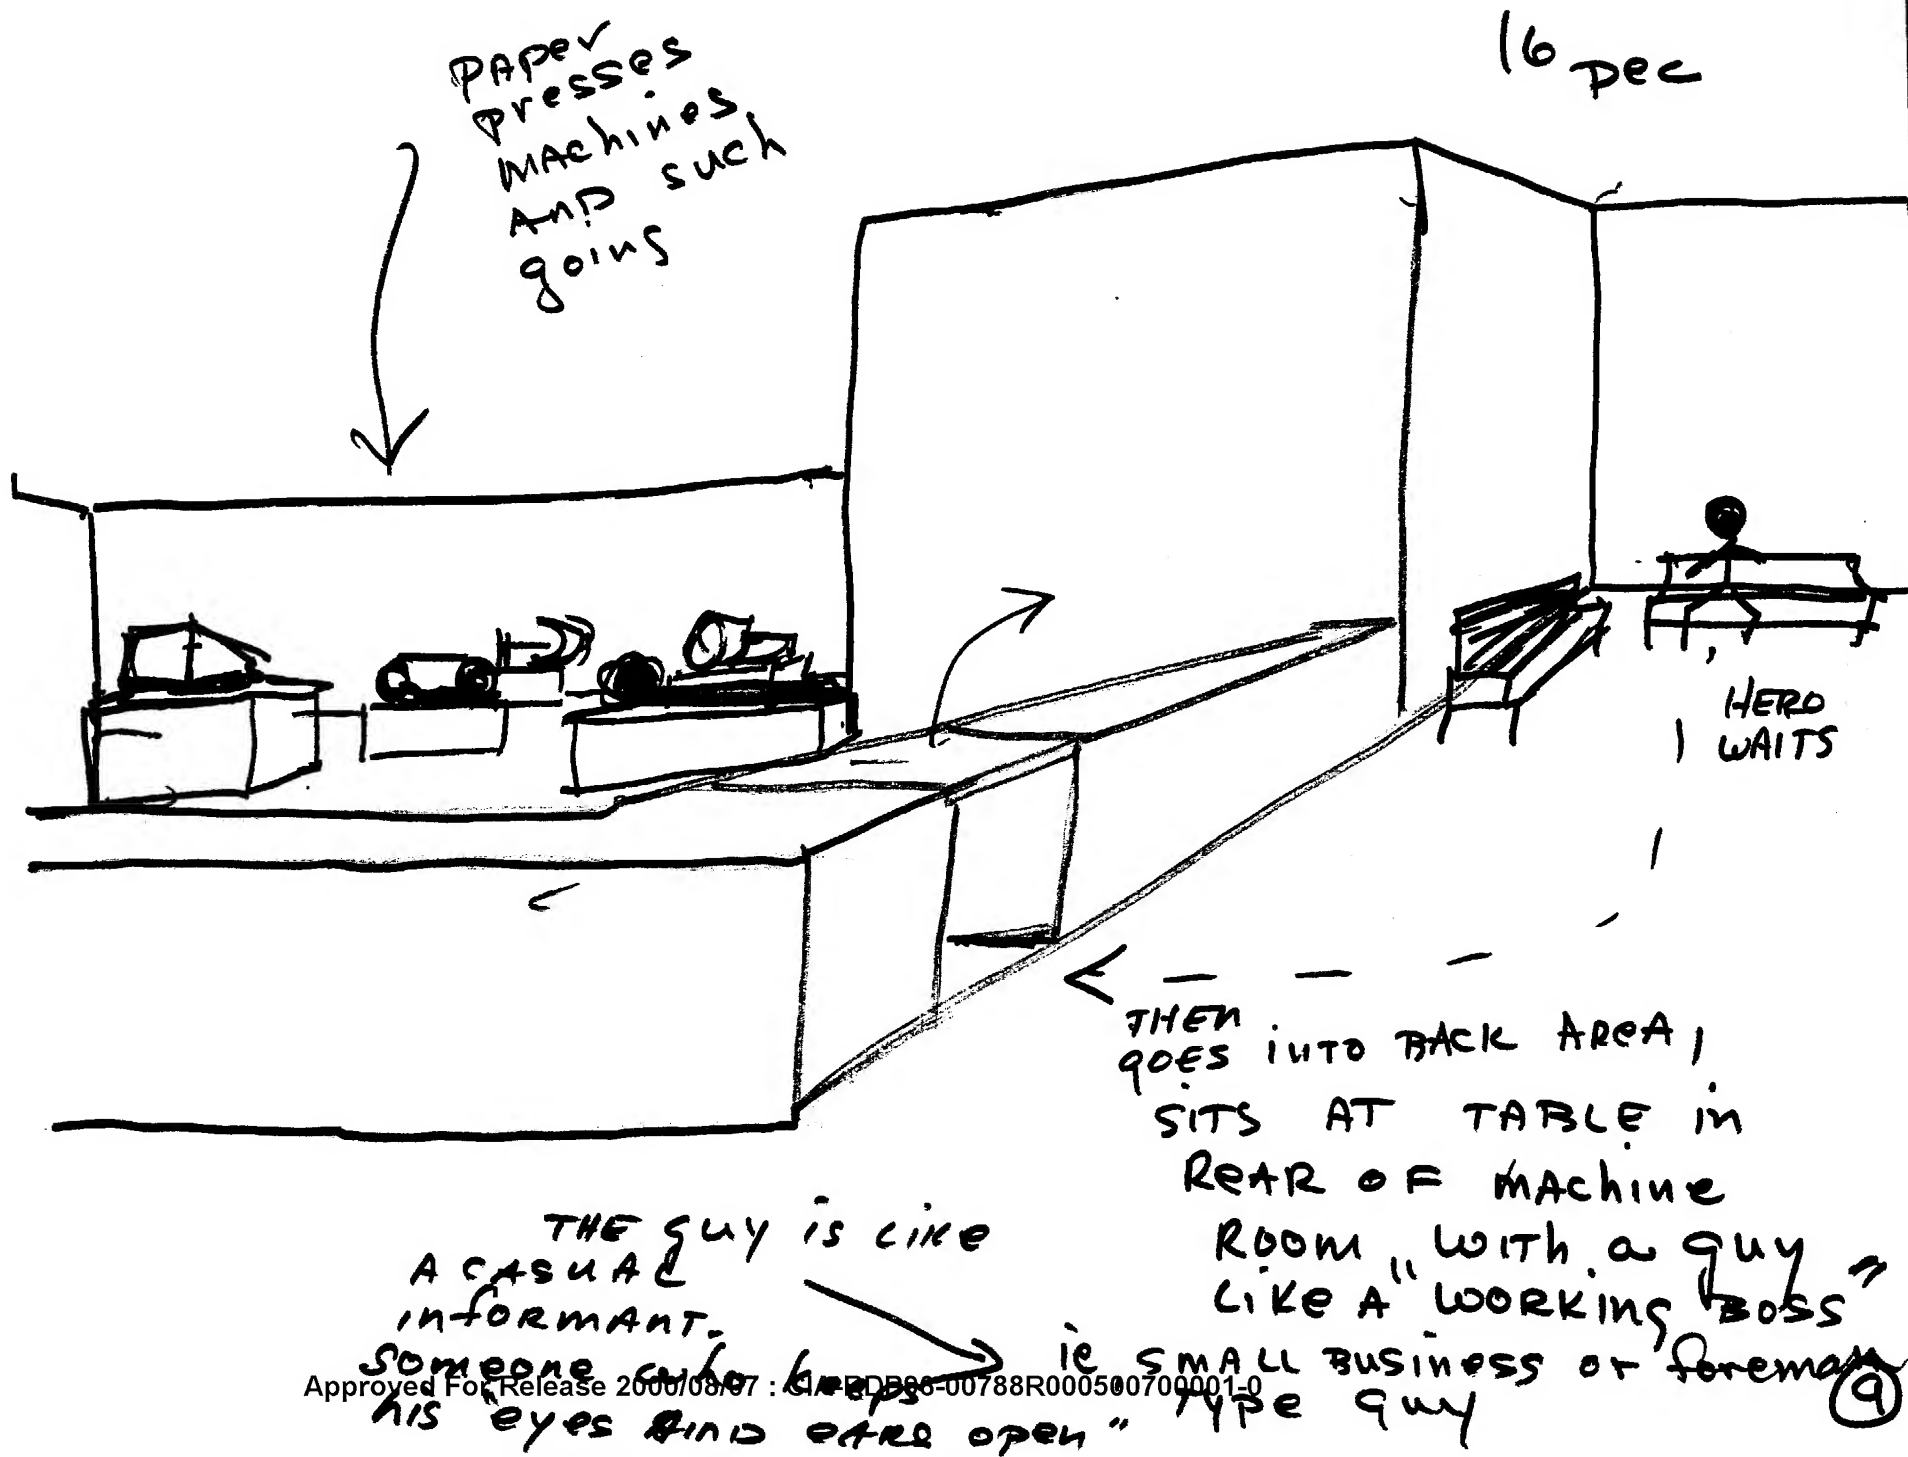 16 DEC
PAPER
PRESSES
MACHINES,
AND SUCH
going
HERO
WAITS
THEN
GOES INTO BACK AREA,
SITS AT TABLE in
REAR OF MACHINE
ROOM, WITH a guy
LIKE A "WORKING BOSS"
ie SMALL BUSINESS or foreman
TYPE guy
THE guy is LIKE
A CASUAL
INFORMANT.
Someone who keeps
his "eyes AND EARS open"
Approved For Release 2000/08/07 : CIA-RDP96-00788R000500700001-0
9